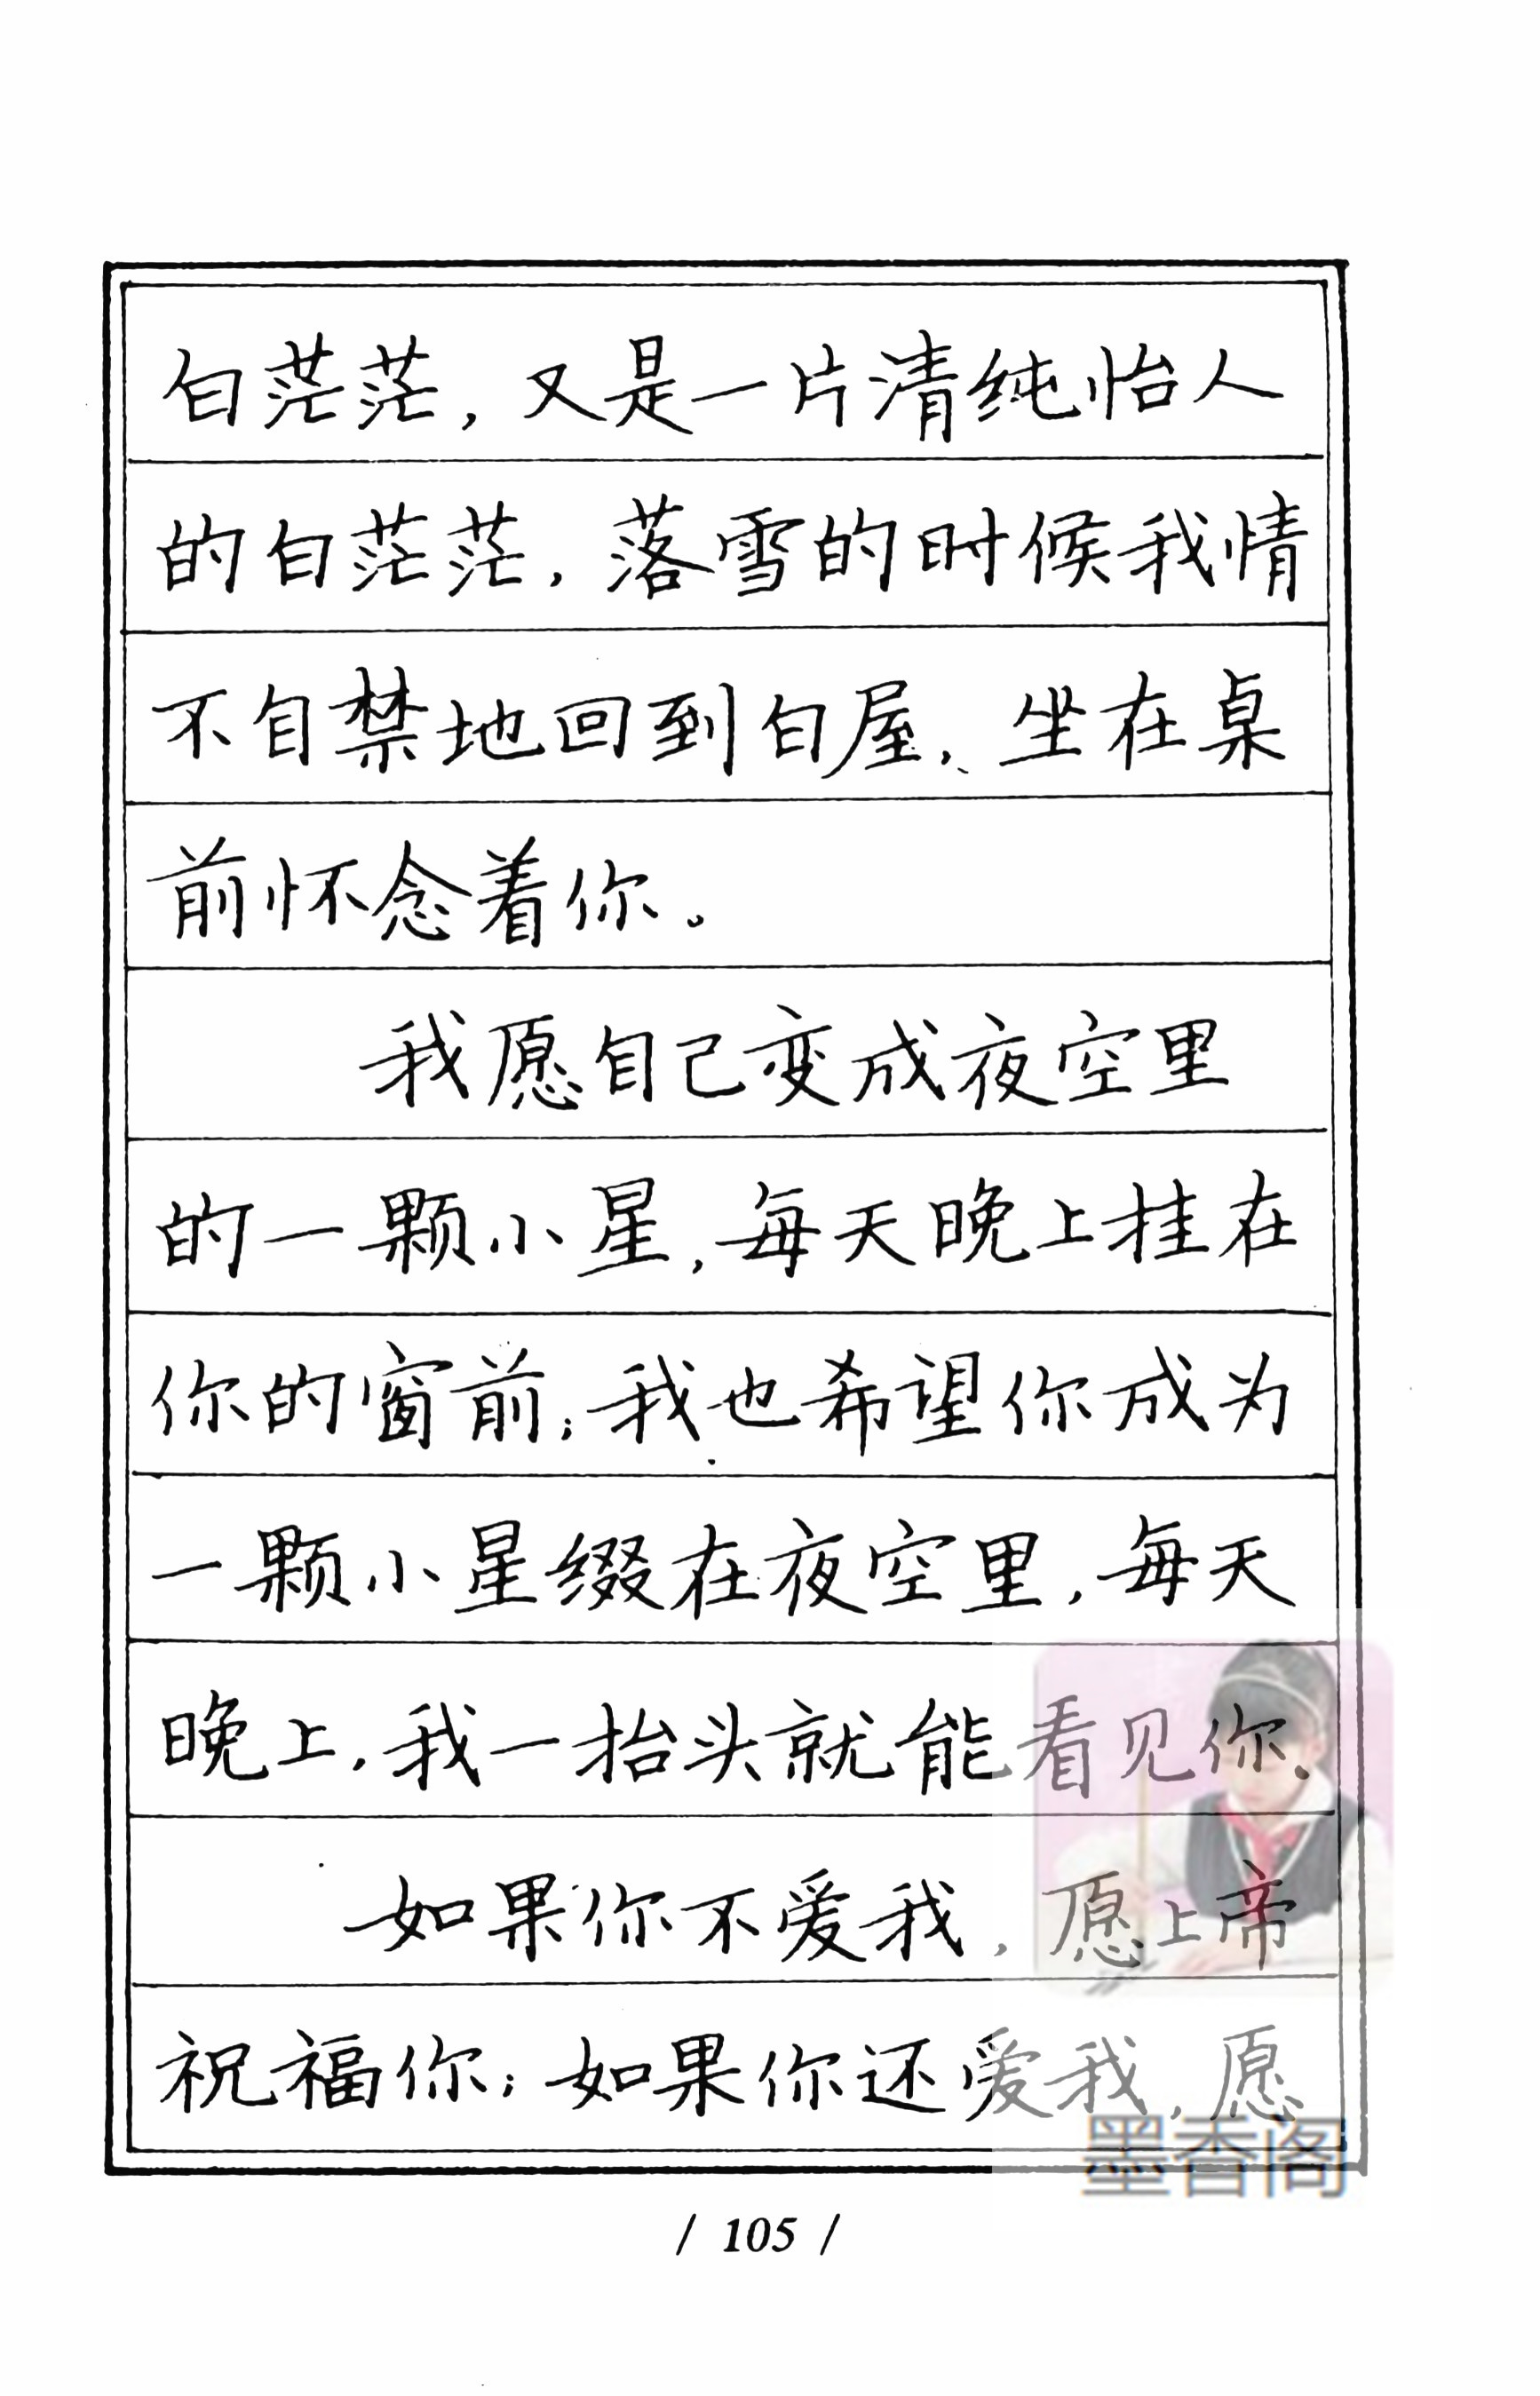 白茫茫,又是一片清纯怡人
的白茫茫,落雪的时候我情
不自禁地回到白屋,坐在桌
前怀念着你。
我愿自己变成夜空里
的一颗小星,每天晚上挂在
你的窗前;我也希望你成为
一颗小星缀在夜空里,每天
晚上,我一抬头就能看见你。
如果你不爱我,愿上帝
祝福你;如果你还爱我,愿
墨香阁
/ 105 /